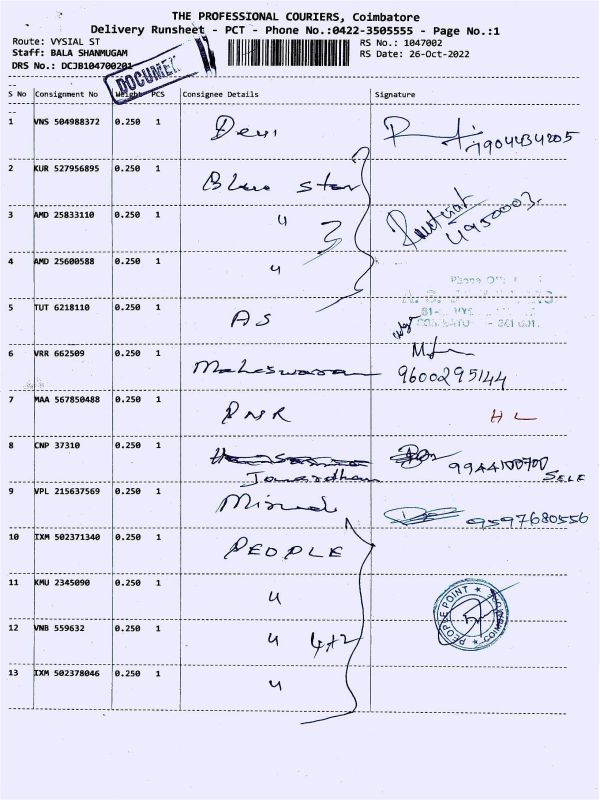 THE PROFESSIONAL COURIERS, Coimbatore
Delivery Runsheet - PCT - Phone No.:0422-3505555 - Page No.:1
Route: VYSIAL ST RS No.: 1047002
Staff: BALA SHANMUGAM RS Date: 26-Oct-2022
DRS No.: DCJB104700201
DOCUMENT
S No Consignment No Weight PCS Consignee Details Signature
1 VNS 504988372 0.250 1 Devi 7904434205
2 KUR 527956895 0.250 1 Blue star
3 AMD 25833110 0.250 1 " 3 4950003.
4 AMD 25600588 0.250 1 "
5 TUT 6218110 0.250 1 AS
6 VRR 662509 0.250 1 Maheswaran 9600295144
7 MAA 567850488 0.250 1 PNR HL
8 CNP 37310 0.250 1 Janardhan 9944100700 SELE
9 VPL 215637569 0.250 1 9597680556
10 IXM 502371340 0.250 1 PEOPLE
11 KMU 2345090 0.250 1 "
12 VNB 559632 0.250 1 " 4+2
13 IXM 502378046 0.250 1 "
PEOPLE POINT